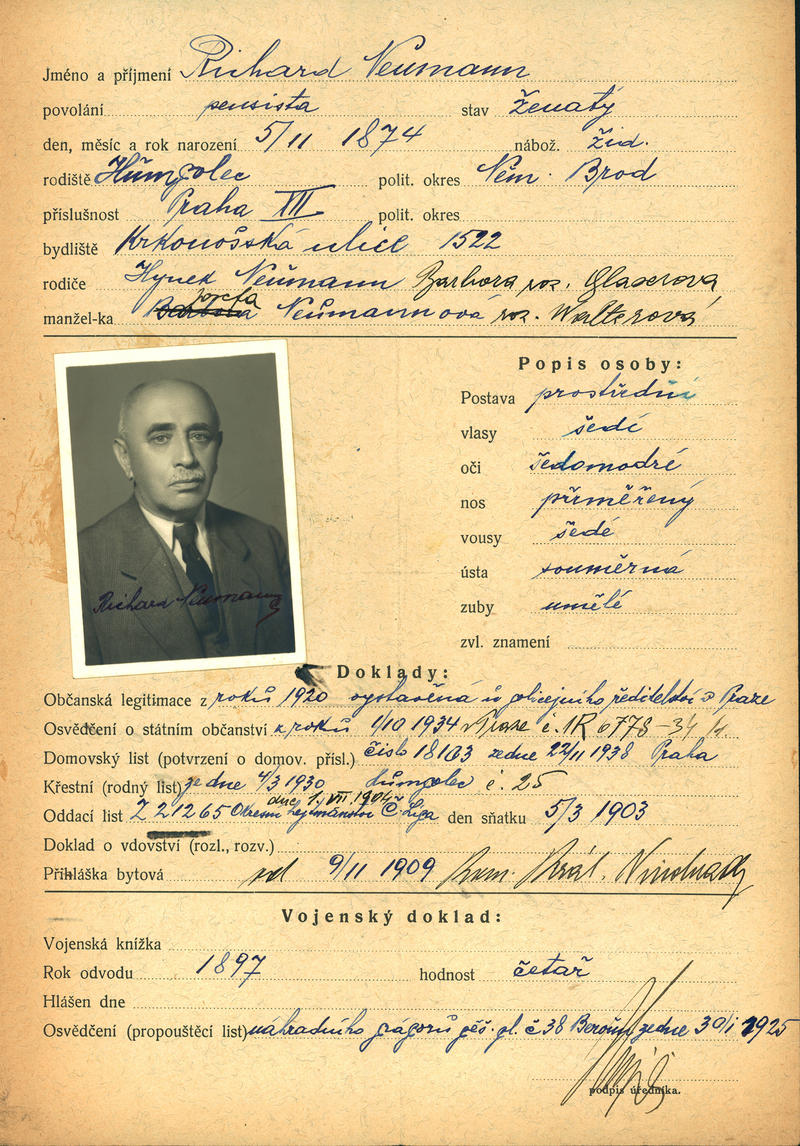 Jméno a příjmení Richard Neumann
povolání pensista stav ženatý
den, měsíc a rok narození 5/II 1874 nábož. žid.
rodiště Humpolec polit. okres Něm. Brod
příslušnost Praha XII polit. okres
bydliště Krkonošská ulice 1522
rodiče Hynek Neumann Barbora roz. Glaserová
manžel-ka Barbora Josefa Neumannová roz. Walterová
Popis osoby:
Postava prostřední
vlasy šedí
oči šedomodré
nos přiměřený
vousy šedé
ústa souměrná
zuby umělé
zvl. znamení
Richard Neumann
Doklady:
Občanská legitimace z roku 1920 vystavěná u policejního ředitelství v Praze
Osvědčení o státním občanství z roku 1/10 1934 v Praze č. 1R 6778-34
Domovský list (potvrzení o domov. přísl.) číslo 18103 ze dne 22/11 1938 Praha
Křestní (rodný list) ze dne 4/3 1930 Humpolec č. 25
dne 1. VII. 1904
Oddací list Z 21265 Okresní hejtmanství Č. Lípa den sňatku 5/3 1903
Doklad o vdovství (rozl., rozv.)
Přihláška bytová od 9/11 1909 Král. Vinohrady
Vojenský doklad:
Vojenská knížka
Rok odvodu 1897 hodnost četař
Hlášen dne
Osvědčení (propouštěcí list) náhradního praporu pěš. pl. č 38 Beroun ze dne 30/I 1925
podpis úředníka.